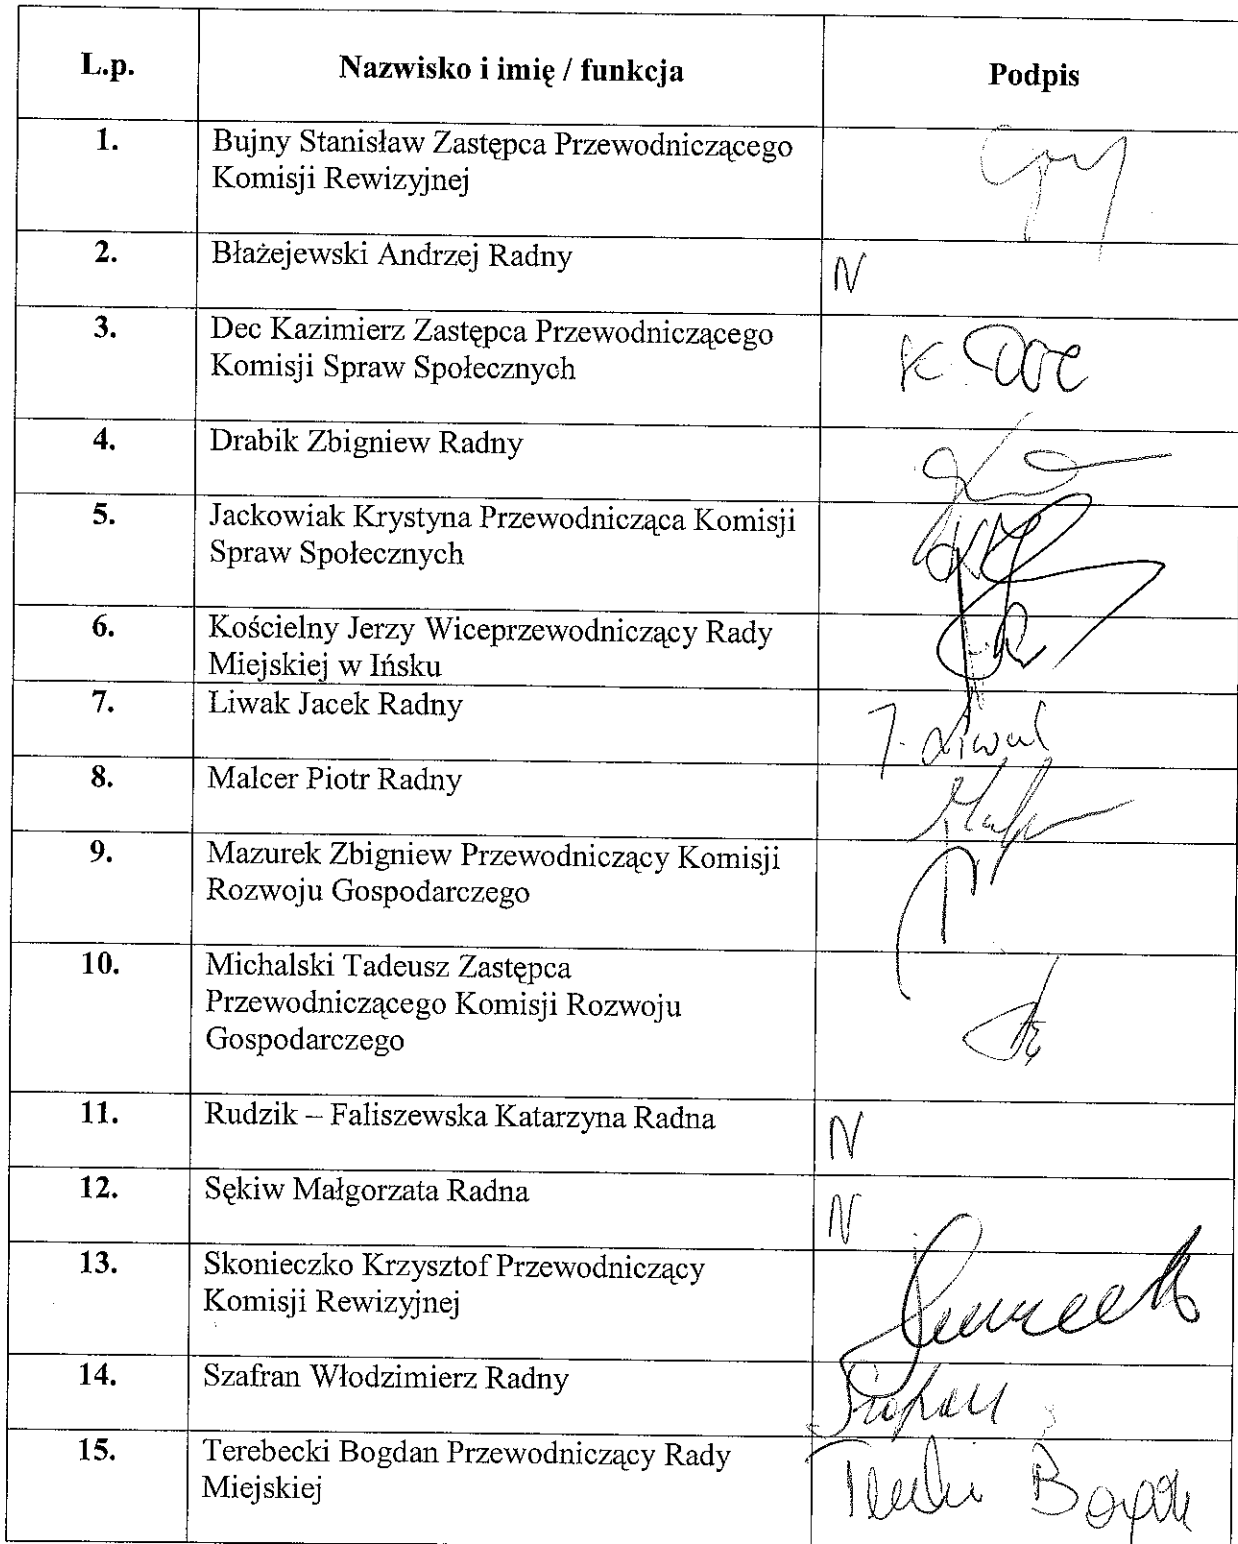 L.p. Nazwisko i imię / funkcja Podpis
1. Bujny Stanisław Zastępca Przewodniczącego
Komisji Rewizyjnej
2. Błażejewski Andrzej Radny N
3. Dec Kazimierz Zastępca Przewodniczącego
Komisji Spraw Społecznych K. Dec
4. Drabik Zbigniew Radny
5. Jackowiak Krystyna Przewodnicząca Komisji
Spraw Społecznych
6. Kościelny Jerzy Wiceprzewodniczący Rady
Miejskiej w Ińsku
7. Liwak Jacek Radny J. Liwak
8. Malcer Piotr Radny
9. Mazurek Zbigniew Przewodniczący Komisji
Rozwoju Gospodarczego
10. Michalski Tadeusz Zastępca
Przewodniczącego Komisji Rozwoju
Gospodarczego
11. Rudzik – Faliszewska Katarzyna Radna N
12. Sękiw Małgorzata Radna N
13. Skonieczko Krzysztof Przewodniczący
Komisji Rewizyjnej
14. Szafran Włodzimierz Radny
15. Terebecki Bogdan Przewodniczący Rady
Miejskiej